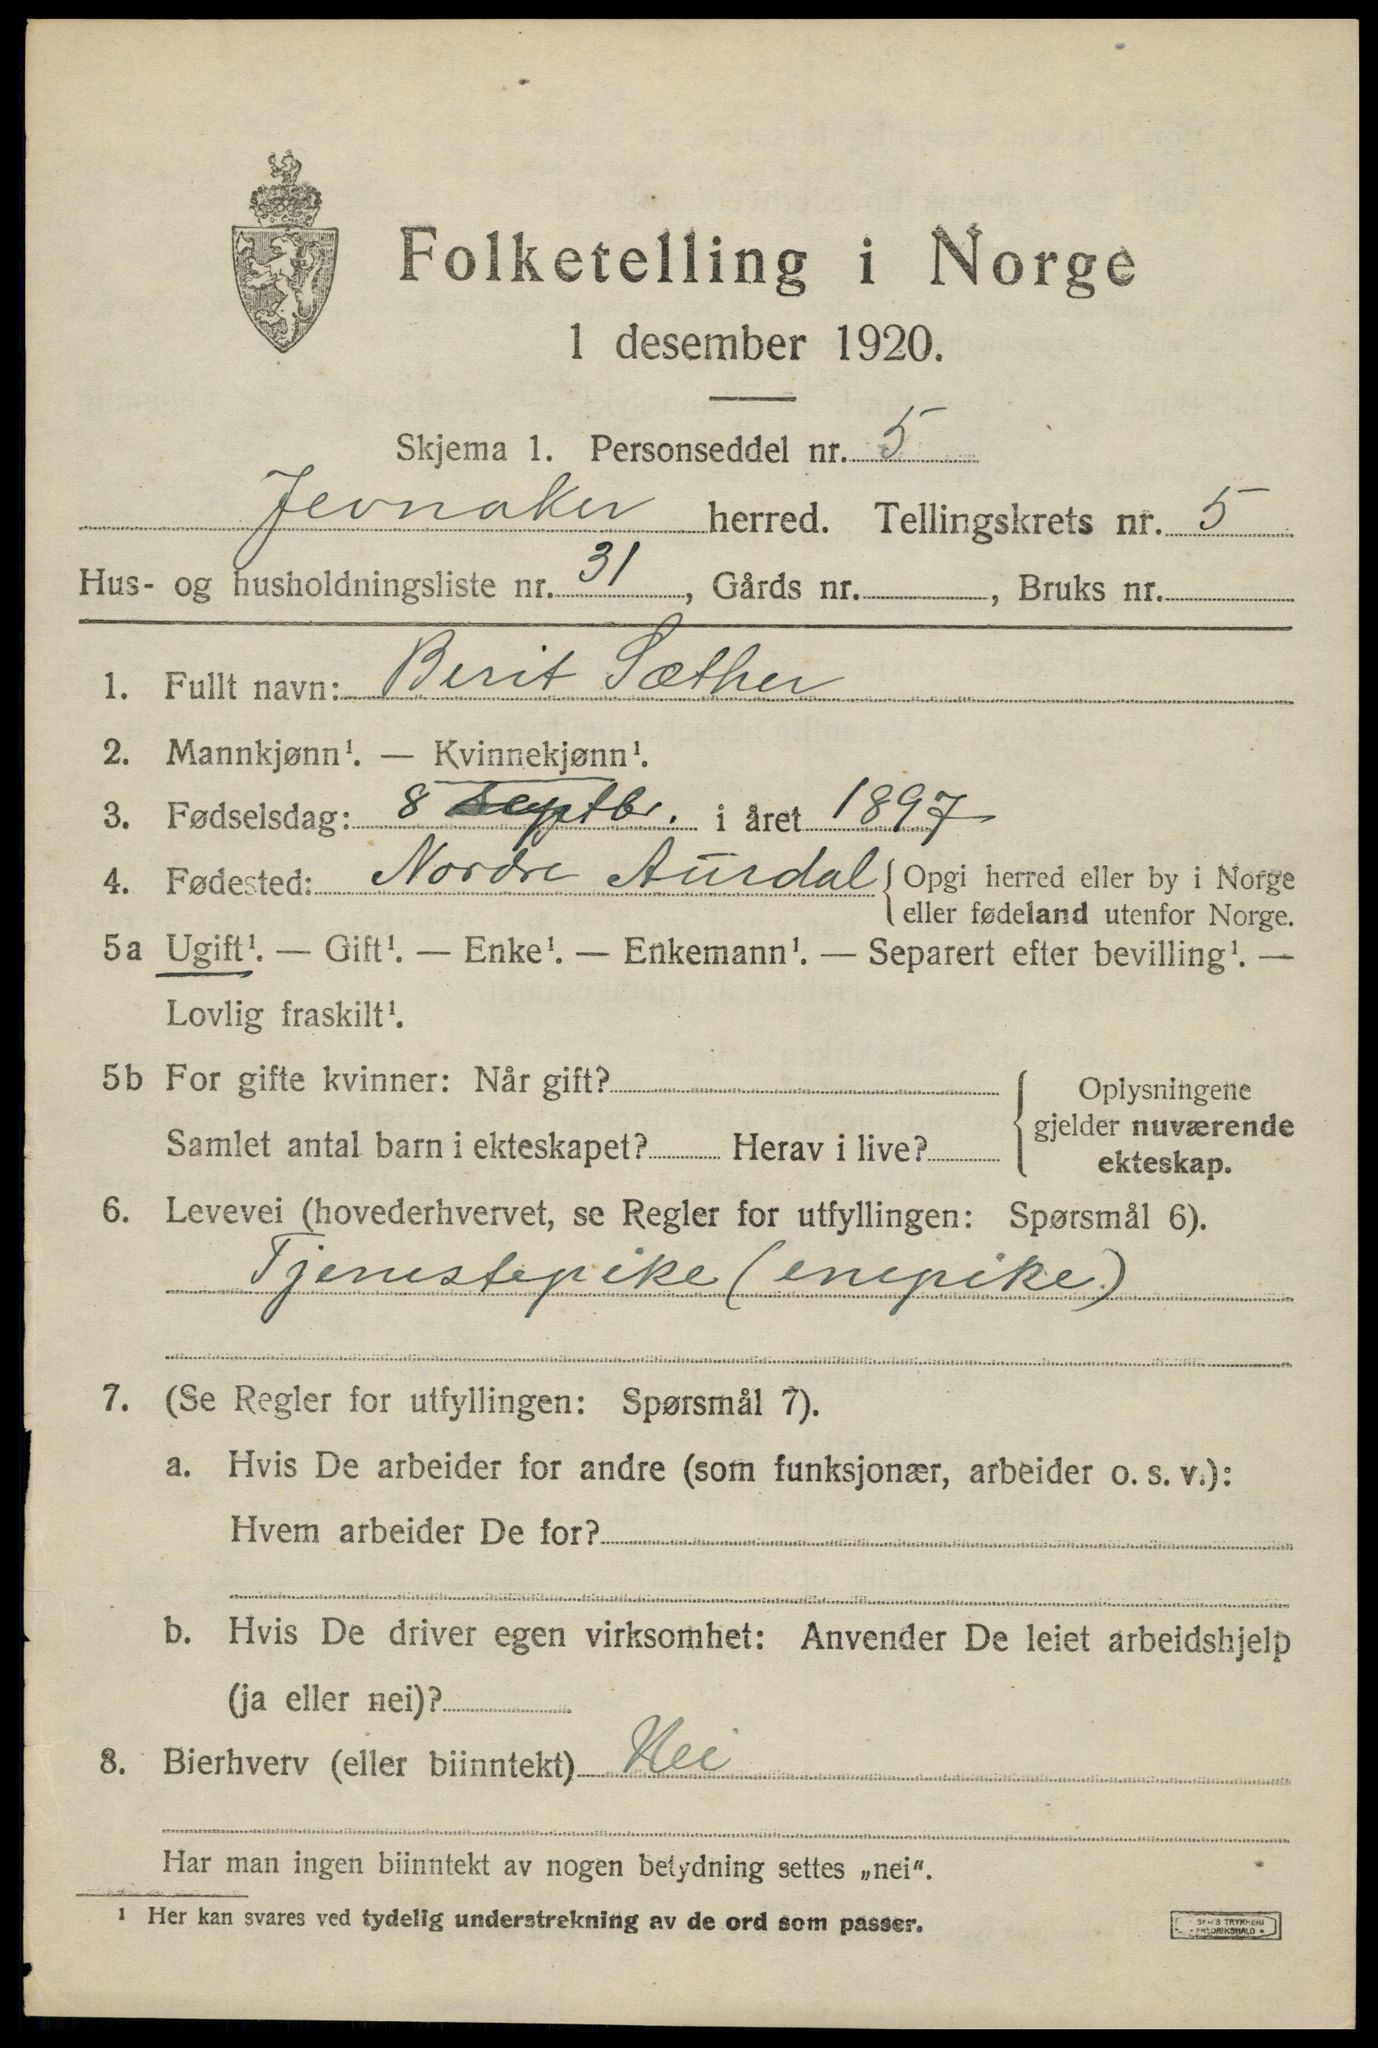 Folketelling i Norge
1 desember 1920.
Skjema 1. Personseddel nr. 5
Jevnaker herred. Tellingskrets nr. 5
Hus- og husholdningsliste nr. 31, Gårds nr. , Bruks nr.
1. Fullt navn: Berit Sæther
2. Mannkjønn¹. — Kvinnekjønn¹.
3. Fødselsdag: 8 septbr. i året 1897
4. Fødested: Nordre Aurdal { Opgi herred eller by i Norge
eller fødeland utenfor Norge.
5a Ugift¹. — Gift¹. — Enke¹. — Enkemann¹. — Separert efter bevilling¹. —
Lovlig fraskilt¹.
5b For gifte kvinner: Når gift?
Samlet antal barn i ekteskapet? Herav i live?
{ Oplysningene
gjelder nuværende
ekteskap.
6. Levevei (hovederhvervet, se Regler for utfyllingen: Spørsmål 6).
Tjenestepike (enepike)
7. (Se Regler for utfyllingen: Spørsmål 7).
a. Hvis De arbeider for andre (som funksjonær, arbeider o. s. v.):
Hvem arbeider De for?
b. Hvis De driver egen virksomhet: Anvender De leiet arbeidshjelp
(ja eller nei)?
8. Bierhverv (eller biinntekt) Nei
Har man ingen biinntekt av nogen betydning settes „nei".
¹ Her kan svares ved tydelig understrekning av de ord som passer.
TRYKKERI
FREDRIKSHALD